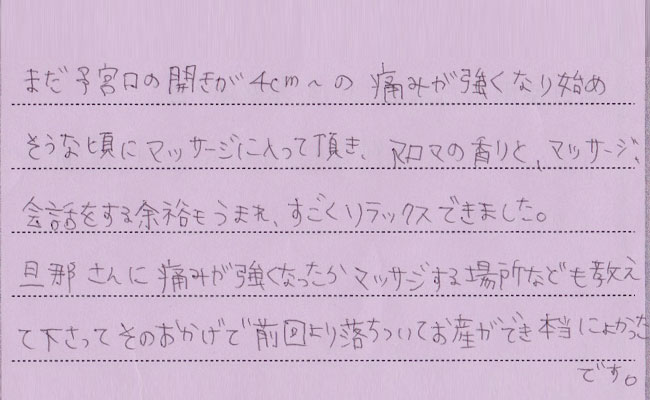 まだ子宮口の開きが4cm～の 痛みが強くなり始め
そうな頃にマッサージに入って頂き、アロマの香りと、マッサージ、
会話をする余裕もうまれ、すごくリラックスできました。
旦那さんに痛みが強くなったらマッサジする場所なども教え
て下さってそのおかげで前回より落ちついてお産ができ本当によかった
です。